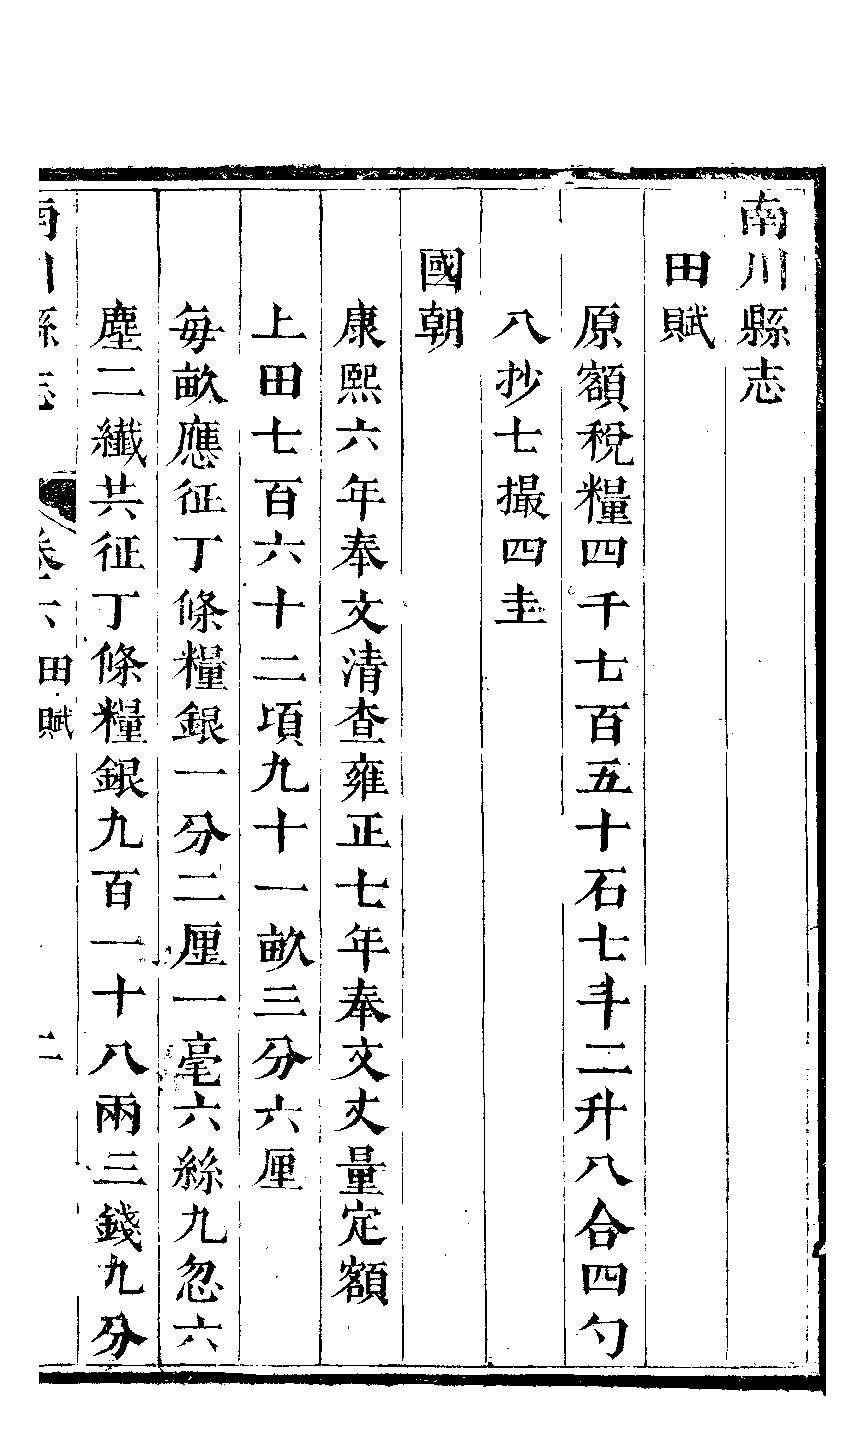 南川縣志
田賦
原額稅糧四千七百五十石七斗二升八合四勺
八抄七撮四圭
國朝
康熙六年奉文清查雍正七年奉文丈量定額
上田七百六十二項九十一畝三分六厘
每畝應征丁條糧銀一分二厘一毫六絲九忽六
塵二纖共征丁條糧銀九百一十八兩三錢九分
南川縣志 卷六 田賦 二